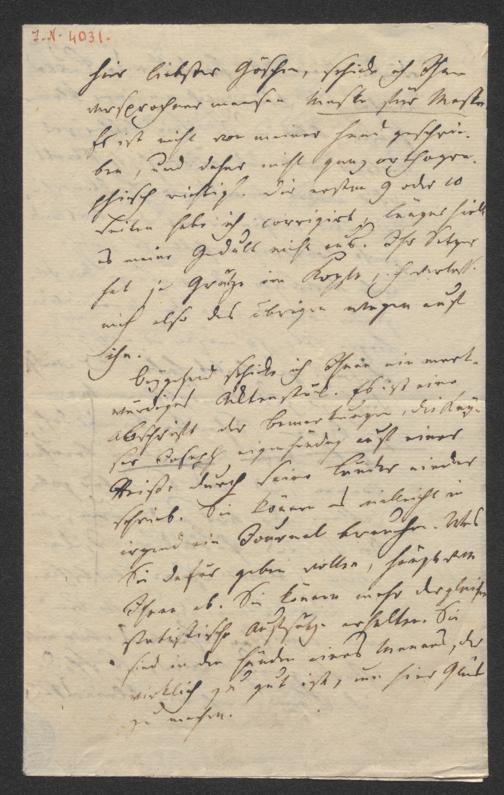 I. N. 4031.
Hier liebster Göschen, schicke ich Ihnen
versprochner maasen Maske für Maske
Es ist nicht von meiner Hand geschrie-
ben, und daher nicht ganz orthogra-
phisch richtig. Die ersten 9 oder 10
Seiten habe ich corrigirt, länger hielt
es meine Gedult nicht aus. Ihr Setzer
hat ja Grütze im Kopfe, ich verlasse
mich also des übrigen wegen auf
ihn.
Beygehend schicke ich Ihnen ein merk-
würdiges Aktenstük. Es ist eine
Abschrift der Bemerkungen, die Kay-
ser Joseph eigenhändig auf einer
Reise durch seine Länder nieder
schrieb. Sie können es vielleicht in
irgend ein Journal brauchen. Was
Sie dafür geben wollen, hängt von
Ihnen ab. Sie können mehr dergleichen
statistische Aufsätze erhalten. Sie
sind in den Händen eines Mannes, der
wirklich zu gut ist, um hier Glük
zu machen.